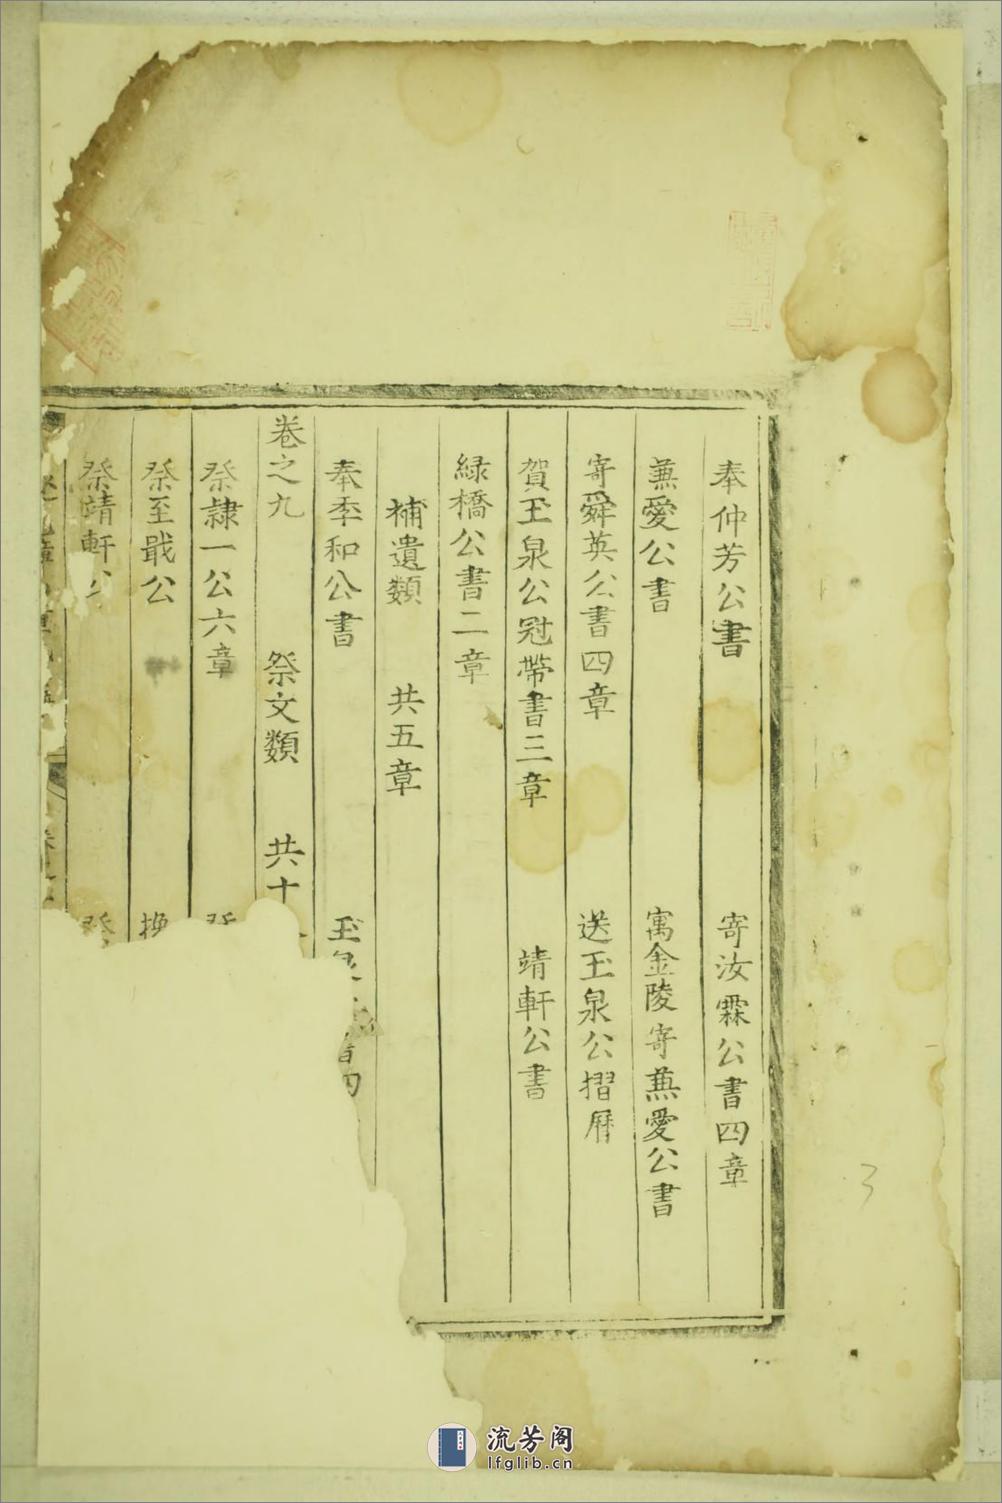 奉仲芳公書 寄汝霖公書四章
蕪愛公書 寓金陵寄蕪愛公書
寄舜英公書四章 送玉泉公摺曆
賀玉泉公冠帶書三章 靖軒公書
緑橋公書二章
補遺類 共五章
奉季和公書 玉泉
卷之九 祭文類 共十
祭隷一公六章 祭
祭至戢公 換
祭靖軒公 祭
3
流芳阁
lfglib.cn